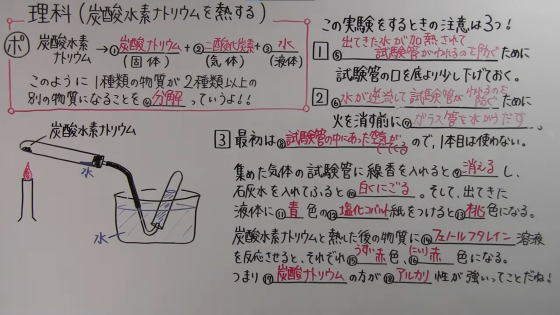 理科(炭酸水素ナトリウムを熱する)
ポ 炭酸水素ナトリウム → ①炭酸ナトリウム(固体) + ②二酸化炭素(気体) + ③水(液体)
このように1種類の物質が2種類以上の
別の物質になることを④分解っていうよ!!
炭酸水素ナトリウム
水
水
この実験をするときの注意は3つ!
1 ⑤出てきた水が加熱されて試験管がわれるのを防ぐために
試験管の口を底より少し下げておく。
2 ⑥水が逆流して試験管がわれるのを防ぐために
火を消す前に⑦ガラス管を水からだす。
3 最初は⑧試験管の中にあった空気がでてくるので、1本目は使わない。
集めた気体の試験管に線香を入れると⑨消えるし、
石灰水を入れてふると⑩白くにごる。そして、出てきた
液体に⑪青色の⑫塩化コバルト紙をつけると⑬桃色になる。
炭酸水素ナトリウムと熱した後の物質に⑭フェノールフタレイン溶液
を反応させると、それぞれ⑮うすい赤色、⑯こい赤色になる。
つまり⑰炭酸ナトリウムの方が⑱アルカリ性が強いってことだね!